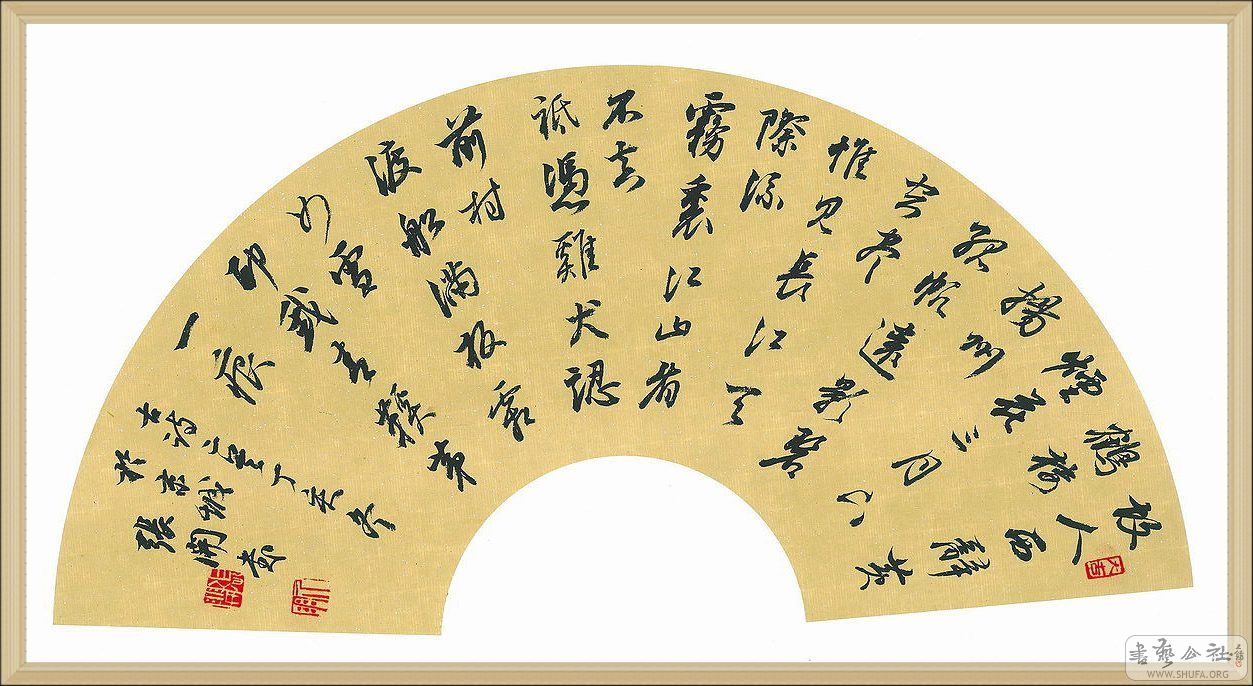 故人西辭黃
鶴樓
煙花三月下
揚州
孤帆遠影碧
空尽
惟見長江天
際流
霧裹江山看
不真
祗憑雞犬認
前村
渡船滿板霜
如雪
印我青鞋第
一痕
古詩二首丁亥冬
於京城
張開
大吉
書藝公社
WWW.SHUFA.ORG